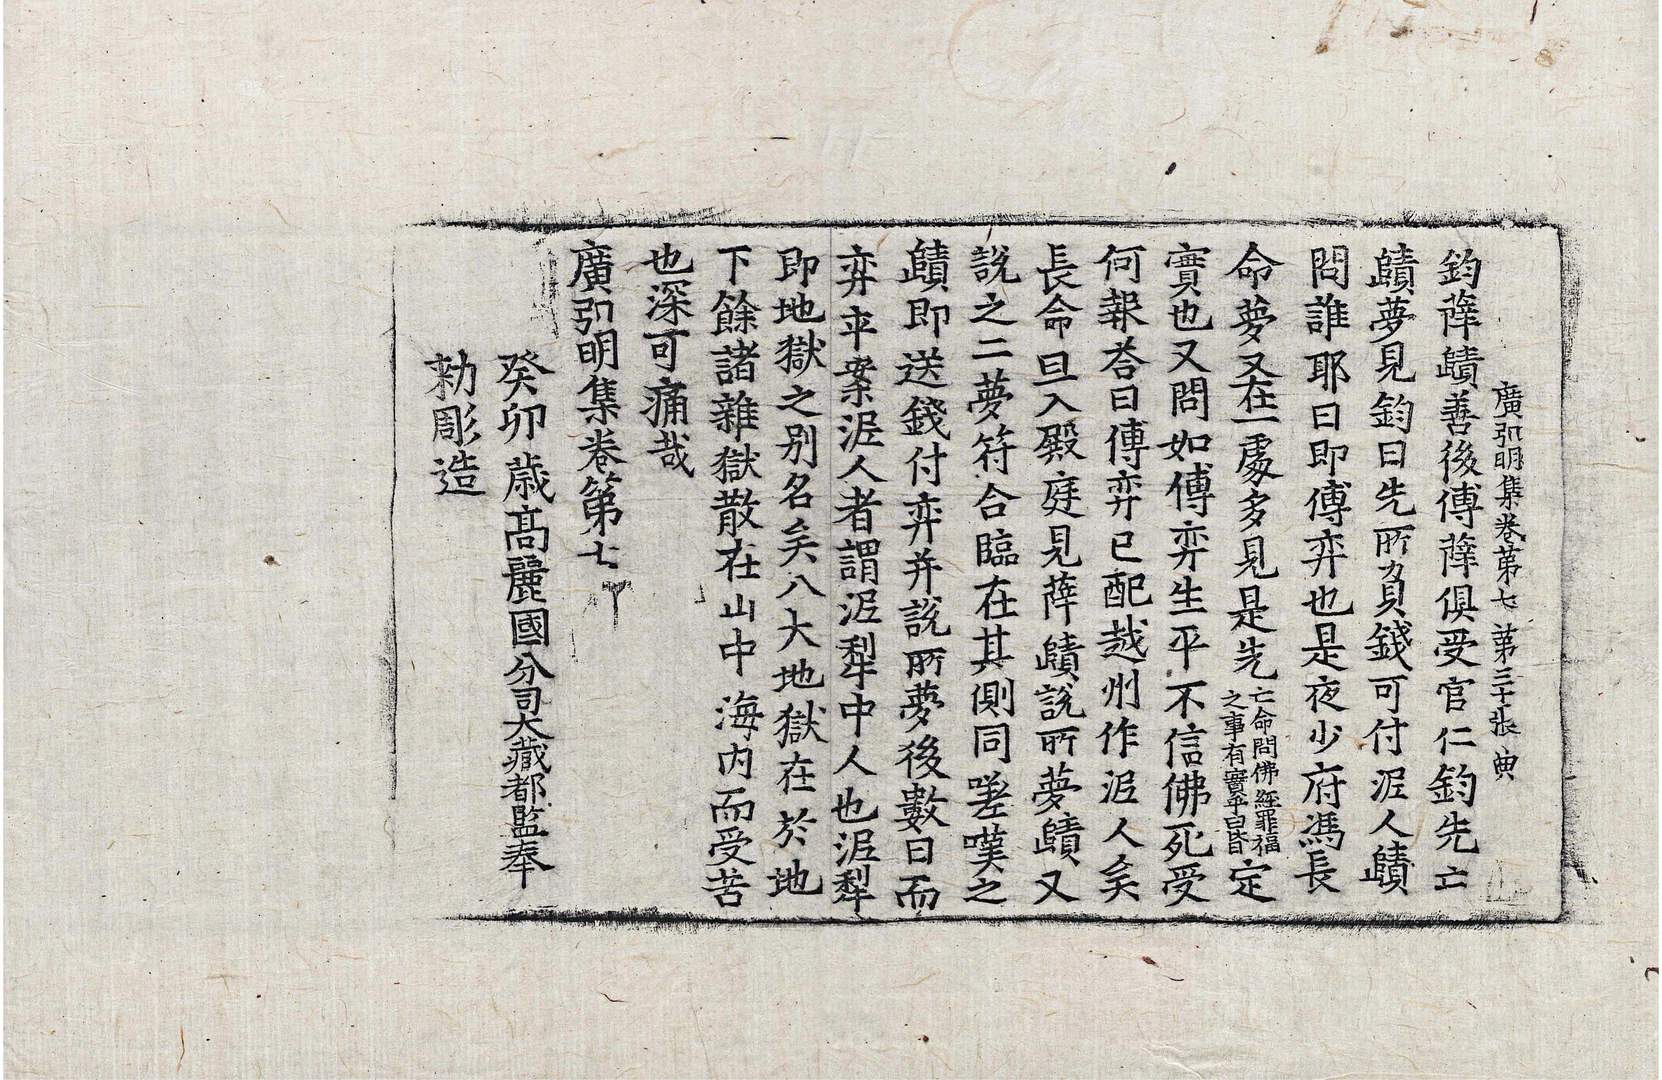 廣弘明集卷第七 第三十張 典
鈞薛賾善後傅薛俱受官仁鈞先亡
賾夢見鈞曰先所負錢可付泥人賾
問誰耶曰即傅弈也是夜少府馮長
命夢又在一處多見是先亡命問佛經罪福之事有實乎曰皆定
實也又問如傅弈生平不信佛死受
何報荅曰傅弈已配越州作泥人矣
長命旦入殿庭見薛賾說所夢賾又
說之二夢符合臨在其側同嗟嘆之
賾即送錢付弈并說所夢後數日而
弈卒案泥人者謂泥犁中人也泥犁
即地獄之别名矣八大地獄在於地
下餘諸雜獄散在山中海内而受苦
也深可痛哉
廣弘明集卷第七
癸卯歳高麗國分司大藏都監奉
勑彫造